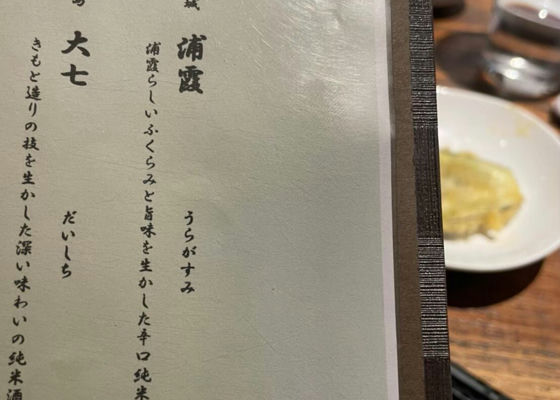 城
浦霞 うらがすみ
浦霞らしいふくらみと旨味を生かした辛口純米
島
大七 だいしち
きもと造りの技を生かした深い味わいの純米酒